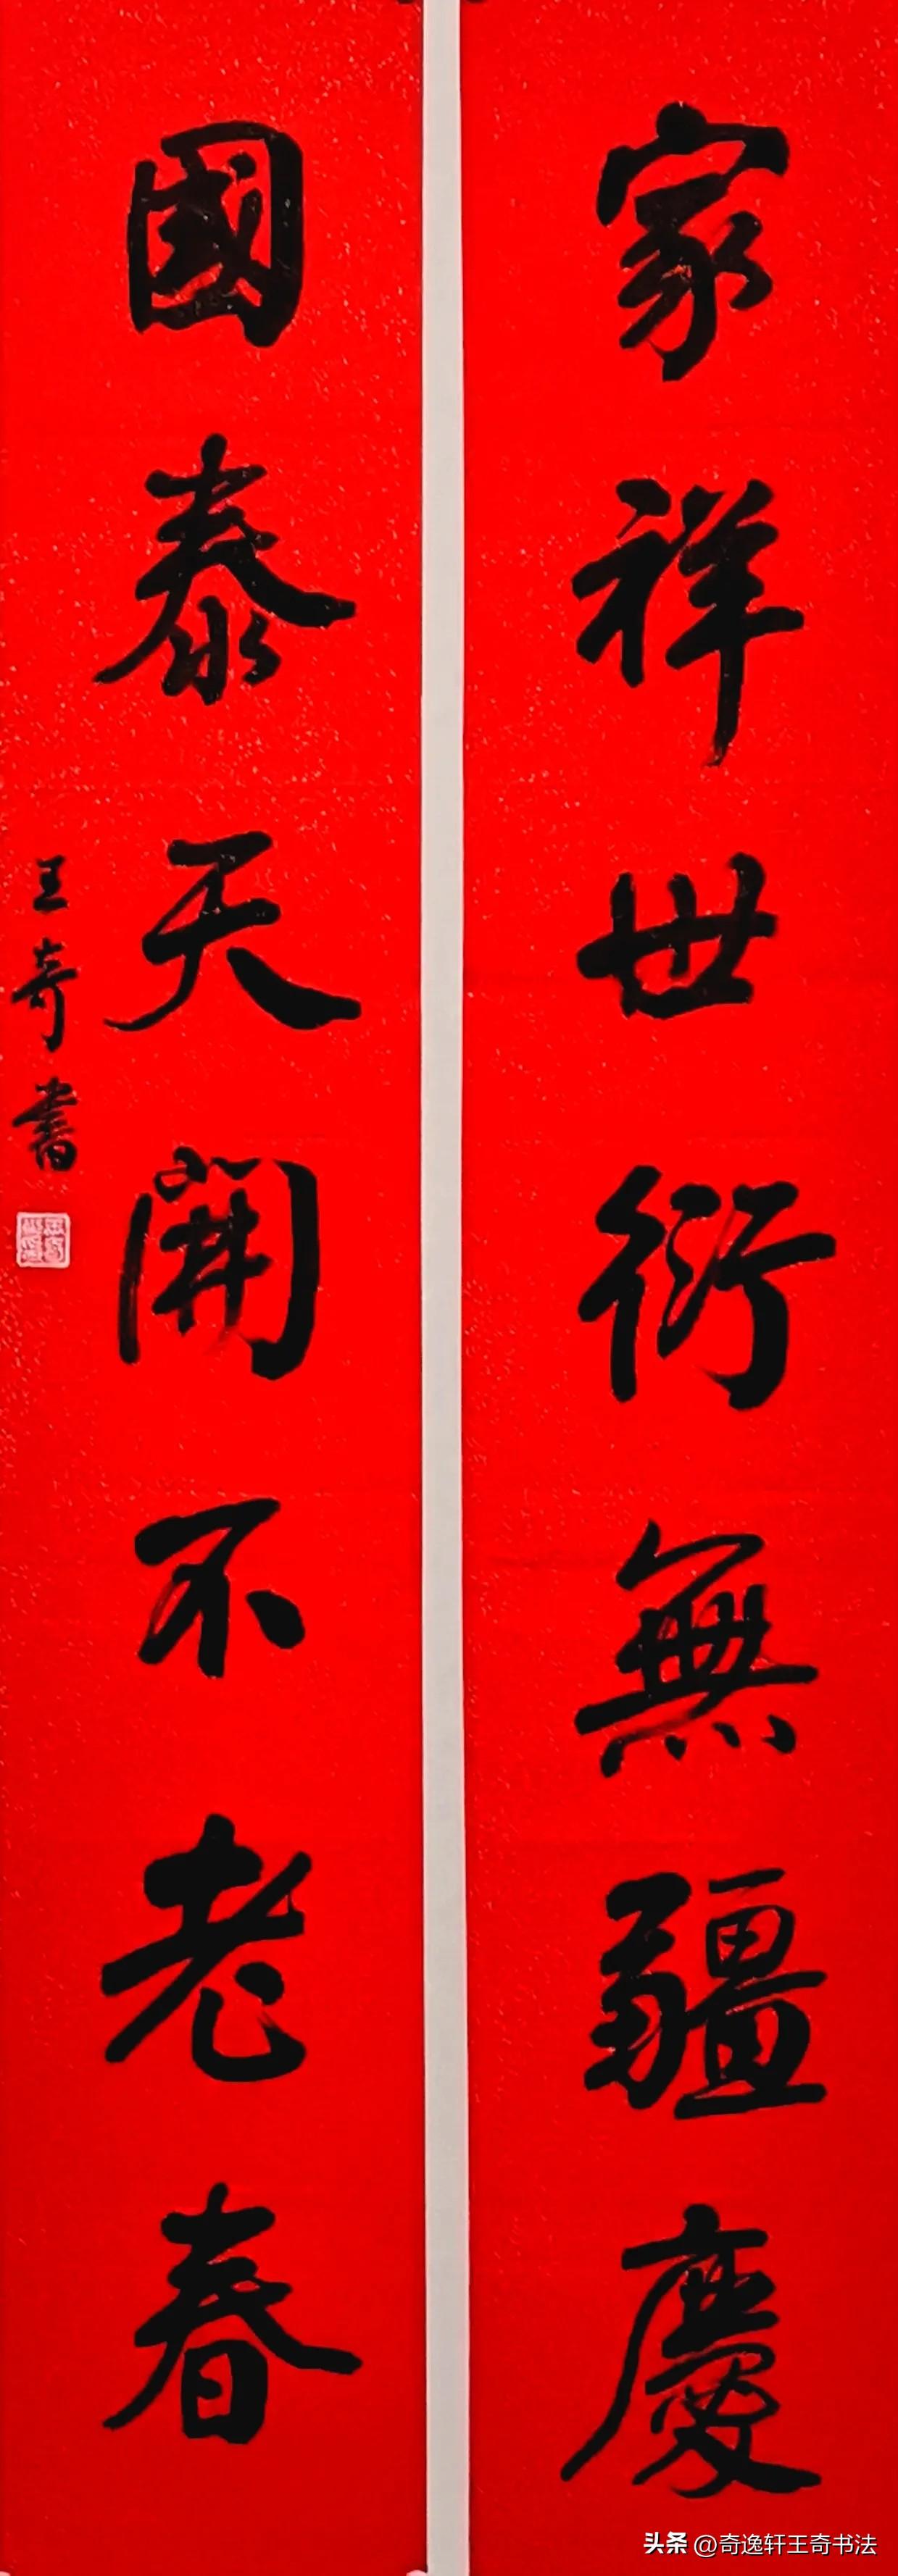 家祥世衍無疆慶
國泰天開不老春
王奇書
头条 @奇逸轩王奇书法